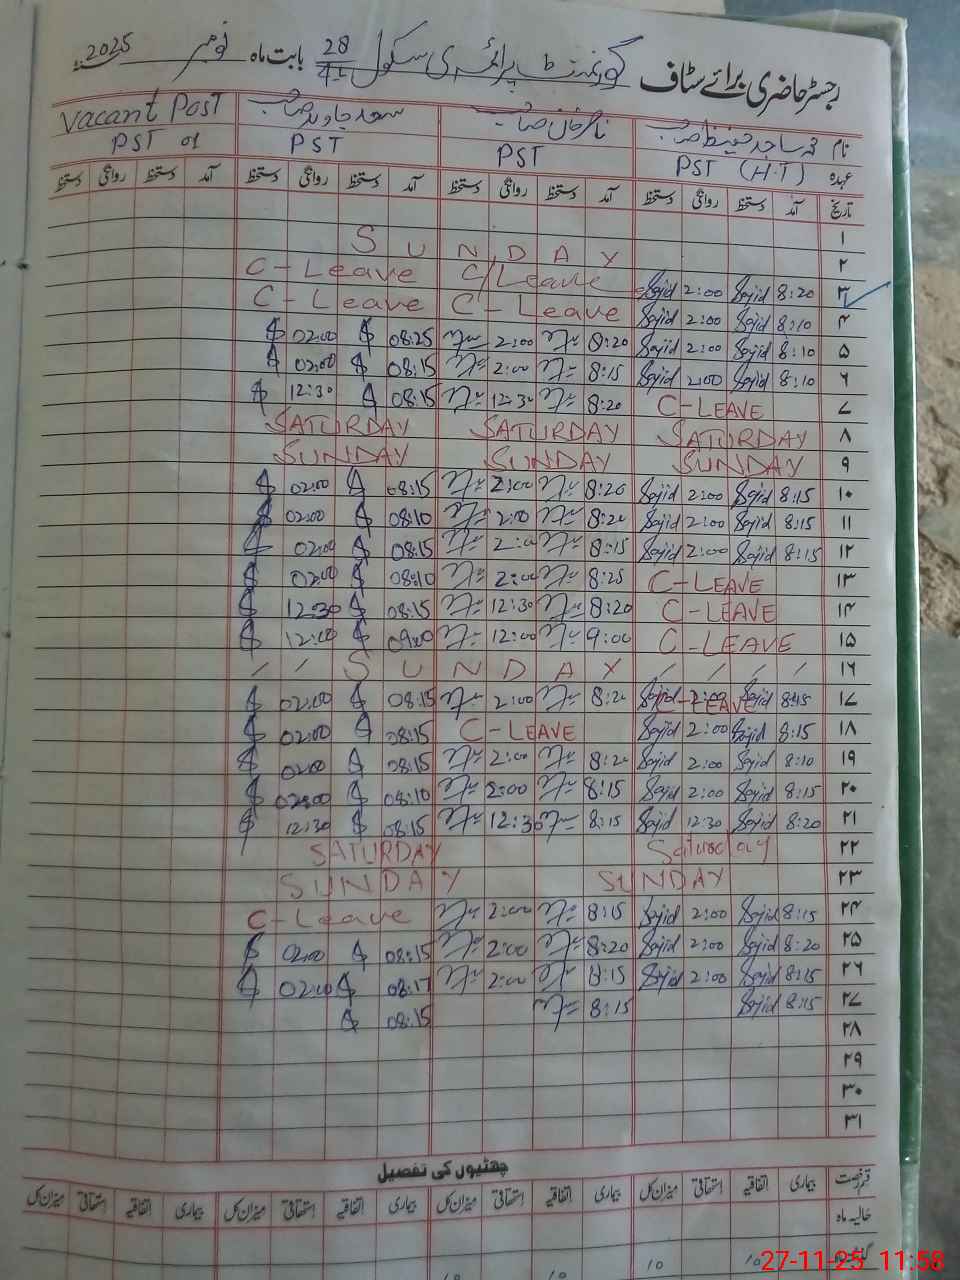 رجسٹر حاضری برائے سٹاف گورنمنٹ پرائمری سکول 28/4-L بابت ماہ نومبر 2025
نام محمد ساجد حفیظ صاحب ناصر خان صاحب سعد جاوید صاحب Vacant Post
عہدہ PST (H.T) PST PST PST 01
تاریخ آمد دستخط روانگی دستخط آمد دستخط روانگی دستخط آمد دستخط روانگی دستخط آمد دستخط روانگی دستخط
۱
۲ SUNDAY
۳ 8:20 Sajid 2:00 Sajid C/Leave C-Leave
۴ 8:10 Sajid 2:00 Sajid C-Leave C-Leave
۵ 8:10 Sajid 2:00 Sajid 8:20 2:00 08:25 02:00
۶ 8:10 Sajid 2:00 Sajid 8:15 2:00 08:15 02:00
۷ C-LEAVE 8:20 12:30 08:15 12:30
۸ SATURDAY SATURDAY SATURDAY
۹ SUNDAY SUNDAY SUNDAY
۱۰ 8:15 Sajid 2:00 Sajid 8:20 2:00 08:15 02:00
۱۱ 8:15 Sajid 2:00 Sajid 8:20 2:00 08:10 02:00
۱۲ 8:15 Sajid 2:00 Sajid 8:15 2:00 08:15 02:00
۱۳ C-LEAVE 8:25 2:00 08:10 02:00
۱۴ C-LEAVE 8:20 12:30 08:15 12:30
۱۵ C-LEAVE 9:00 12:00 09:00 12:00
۱۶ SUNDAY
۱۷ 8:15 Sajid 2:00 Sajid C-LEAVE 8:20 2:00 08:15 02:00
۱۸ 8:15 Sajid 2:00 Sajid C-LEAVE 08:15 02:00
۱۹ 8:10 Sajid 2:00 Sajid 8:20 2:00 08:15 02:00
۲۰ 8:15 Sajid 2:00 Sajid 8:15 2:00 08:10 02:00
۲۱ 8:20 Sajid 12:30 Sajid 8:15 12:30 08:15 12:30
۲۲ Saturday SATURDAY
۲۳ SUNDAY SUNDAY
۲۴ 8:15 Sajid 2:00 Sajid 8:15 2:00 C-Leave
۲۵ 8:20 Sajid 2:00 Sajid 8:20 2:00 08:15 02:00
۲۶ 8:15 Sajid 2:00 Sajid 8:15 2:00 08:17 02:00
۲۷ 8:15 Sajid 8:15 08:15
۲۸
۲۹
۳۰
۳۱
چھٹیوں کی تفصیل
قسم رخصت بیماری اتفاقیہ استحقاقی میزان کل بیماری اتفاقیہ استحقاقی میزان کل بیماری اتفاقیہ استحقاقی میزان کل بیماری اتفاقیہ استحقاقی میزان کل
حالیہ ماہ
10 10 10 10
27-11-25 11:58